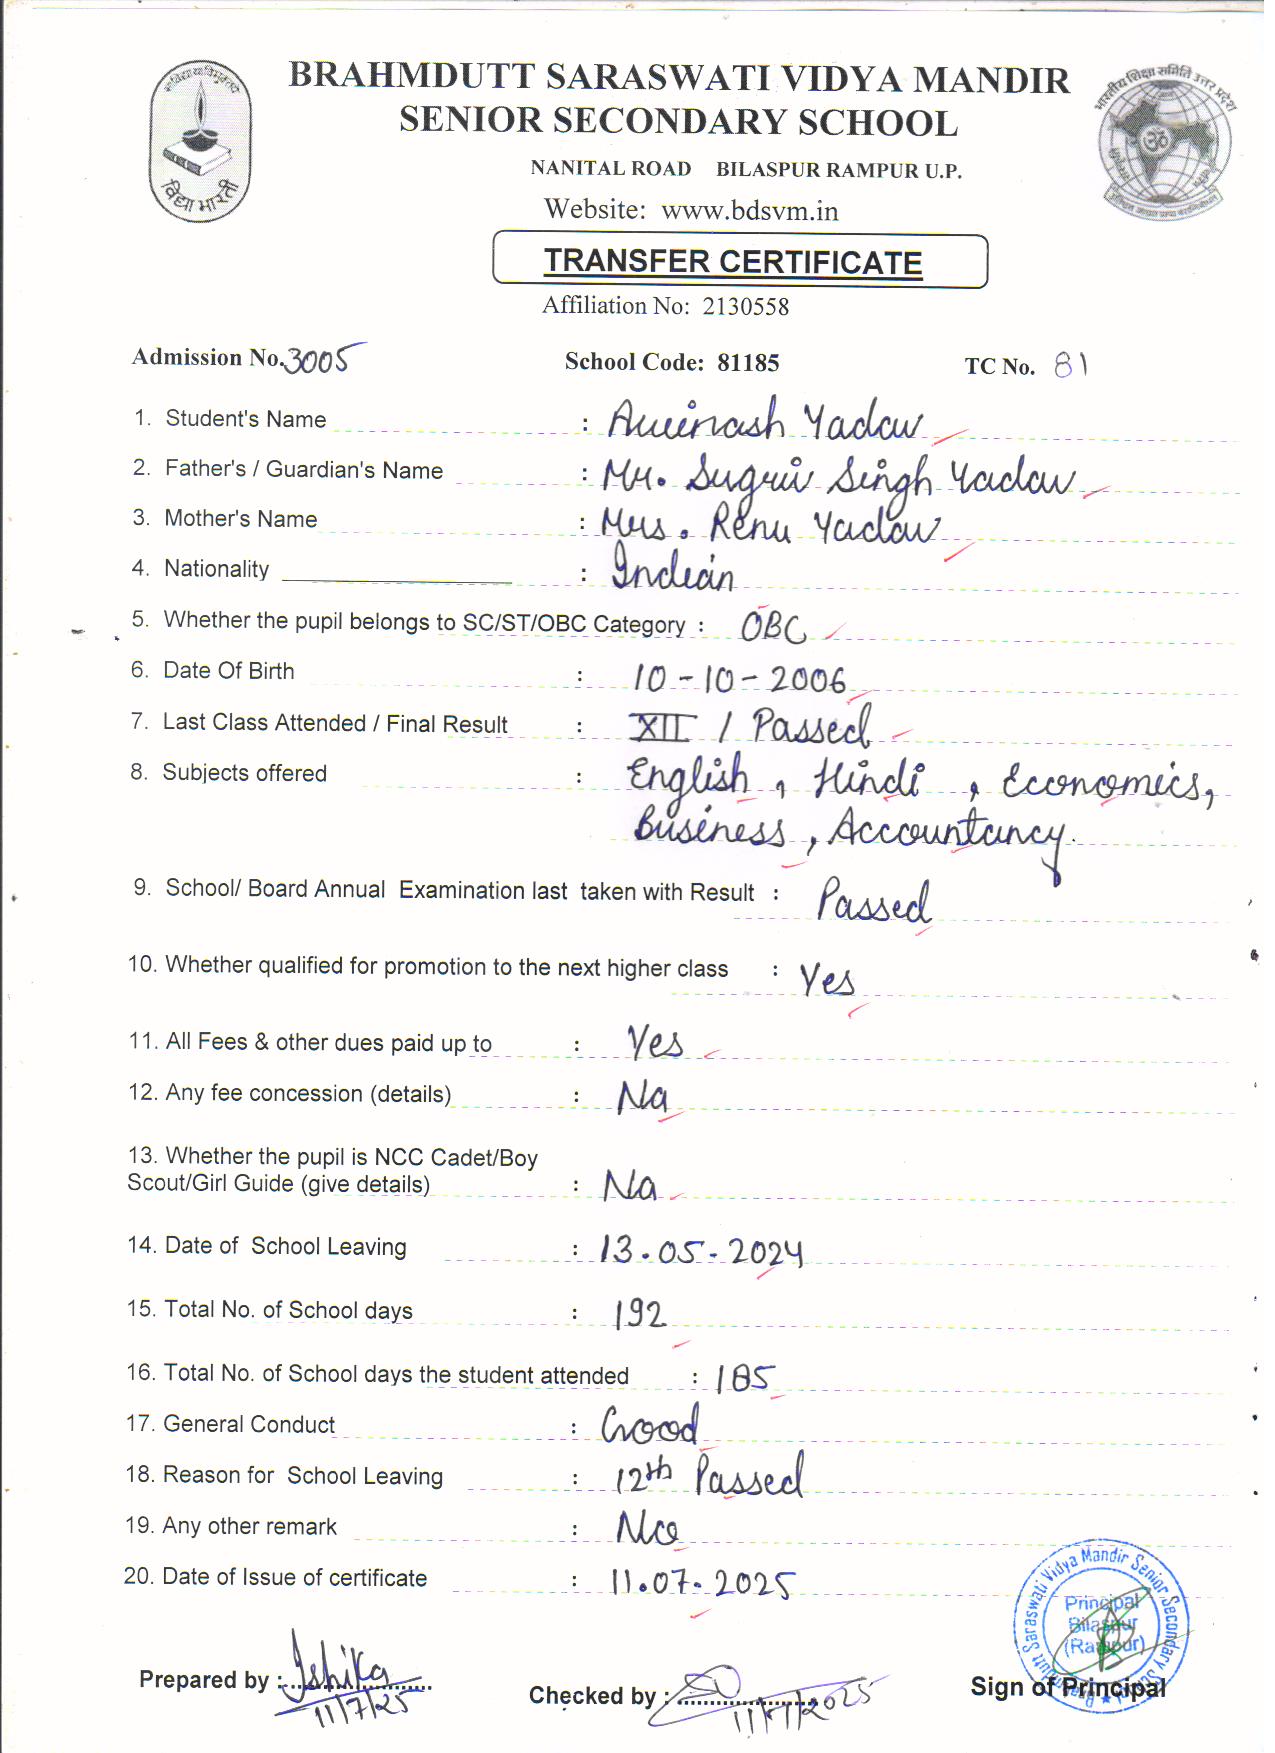 BRAHMDUTT SARASWATI VIDYA MANDIR
SENIOR SECONDARY SCHOOL
NANITAL ROAD BILASPUR RAMPUR U.P.
Website: www.bdsvm.in
विद्या भारती
भारतीय शिक्षा समिति उत्तर प्रदेश
TRANSFER CERTIFICATE
Affiliation No: 2130558
Admission No. 3005 School Code: 81185 TC No. 81
1. Student's Name : Avinash Yadav
2. Father's / Guardian's Name : Mr. Sugriv Singh Yadav
3. Mother's Name : Mrs. Renu Yadav
4. Nationality : Indian
5. Whether the pupil belongs to SC/ST/OBC Category : OBC
6. Date Of Birth : 10-10-2006
7. Last Class Attended / Final Result : XII / Passed
8. Subjects offered : English, Hindi, Economics,
Business, Accountancy.
9. School/ Board Annual Examination last taken with Result : Passed
10. Whether qualified for promotion to the next higher class : Yes
11. All Fees & other dues paid up to : Yes
12. Any fee concession (details) : Na
13. Whether the pupil is NCC Cadet/Boy
Scout/Girl Guide (give details) : Na
14. Date of School Leaving : 13.05.2024
15. Total No. of School days : 192
16. Total No. of School days the student attended : 185
17. General Conduct : Good
18. Reason for School Leaving : 12th Passed
19. Any other remark : No
20. Date of Issue of certificate : 11.07.2025
Saraswati Vidya Mandir Senior Secondary
Principal
Bilaspur
(Rampur)
Prepared by : Ishika Checked by : Sign of Principal
11/7/25 11/7/2025